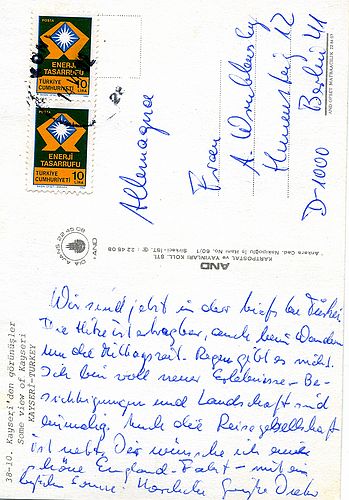 POSTA
ENERJİ
TASARRUFU
TÜRKİYE
CUMHURİYETİ
10
LİRA
POSTA
ENERJİ
TASARRUFU
TÜRKİYE
CUMHURİYETİ
10
LİRA
Allemagne
Frau
A. Wroblewsky
Hünensteig 12
D-1000 Berlin 41
AND
KARTPOSTAL ve YAYINLARI KOLL. ŞTİ.
Ankara Cad. Nakipoğlu İş Hanı No. 60/1
Sirkeci-İST. 22 45 08
38-10. Kayseri'den görünüşler
Some view of Kayseri
KAYSERİ-TURKEY
Wir sind jetzt in der Türkei
Die Hitze ist ertragbar, auch beim Wandern
um die Mittagszeit. Regen gibt es nicht.
Ich bin voll neuer Erlebnisse - Be-
sichtigungen und Landschaft sind
einmalig. Auch die Reisegesellschaft
ist nett. Dir wünsche ich eine
schöne England-Fahrt - mit ein
bißchen Sonne! Herzliche Grüße Deine